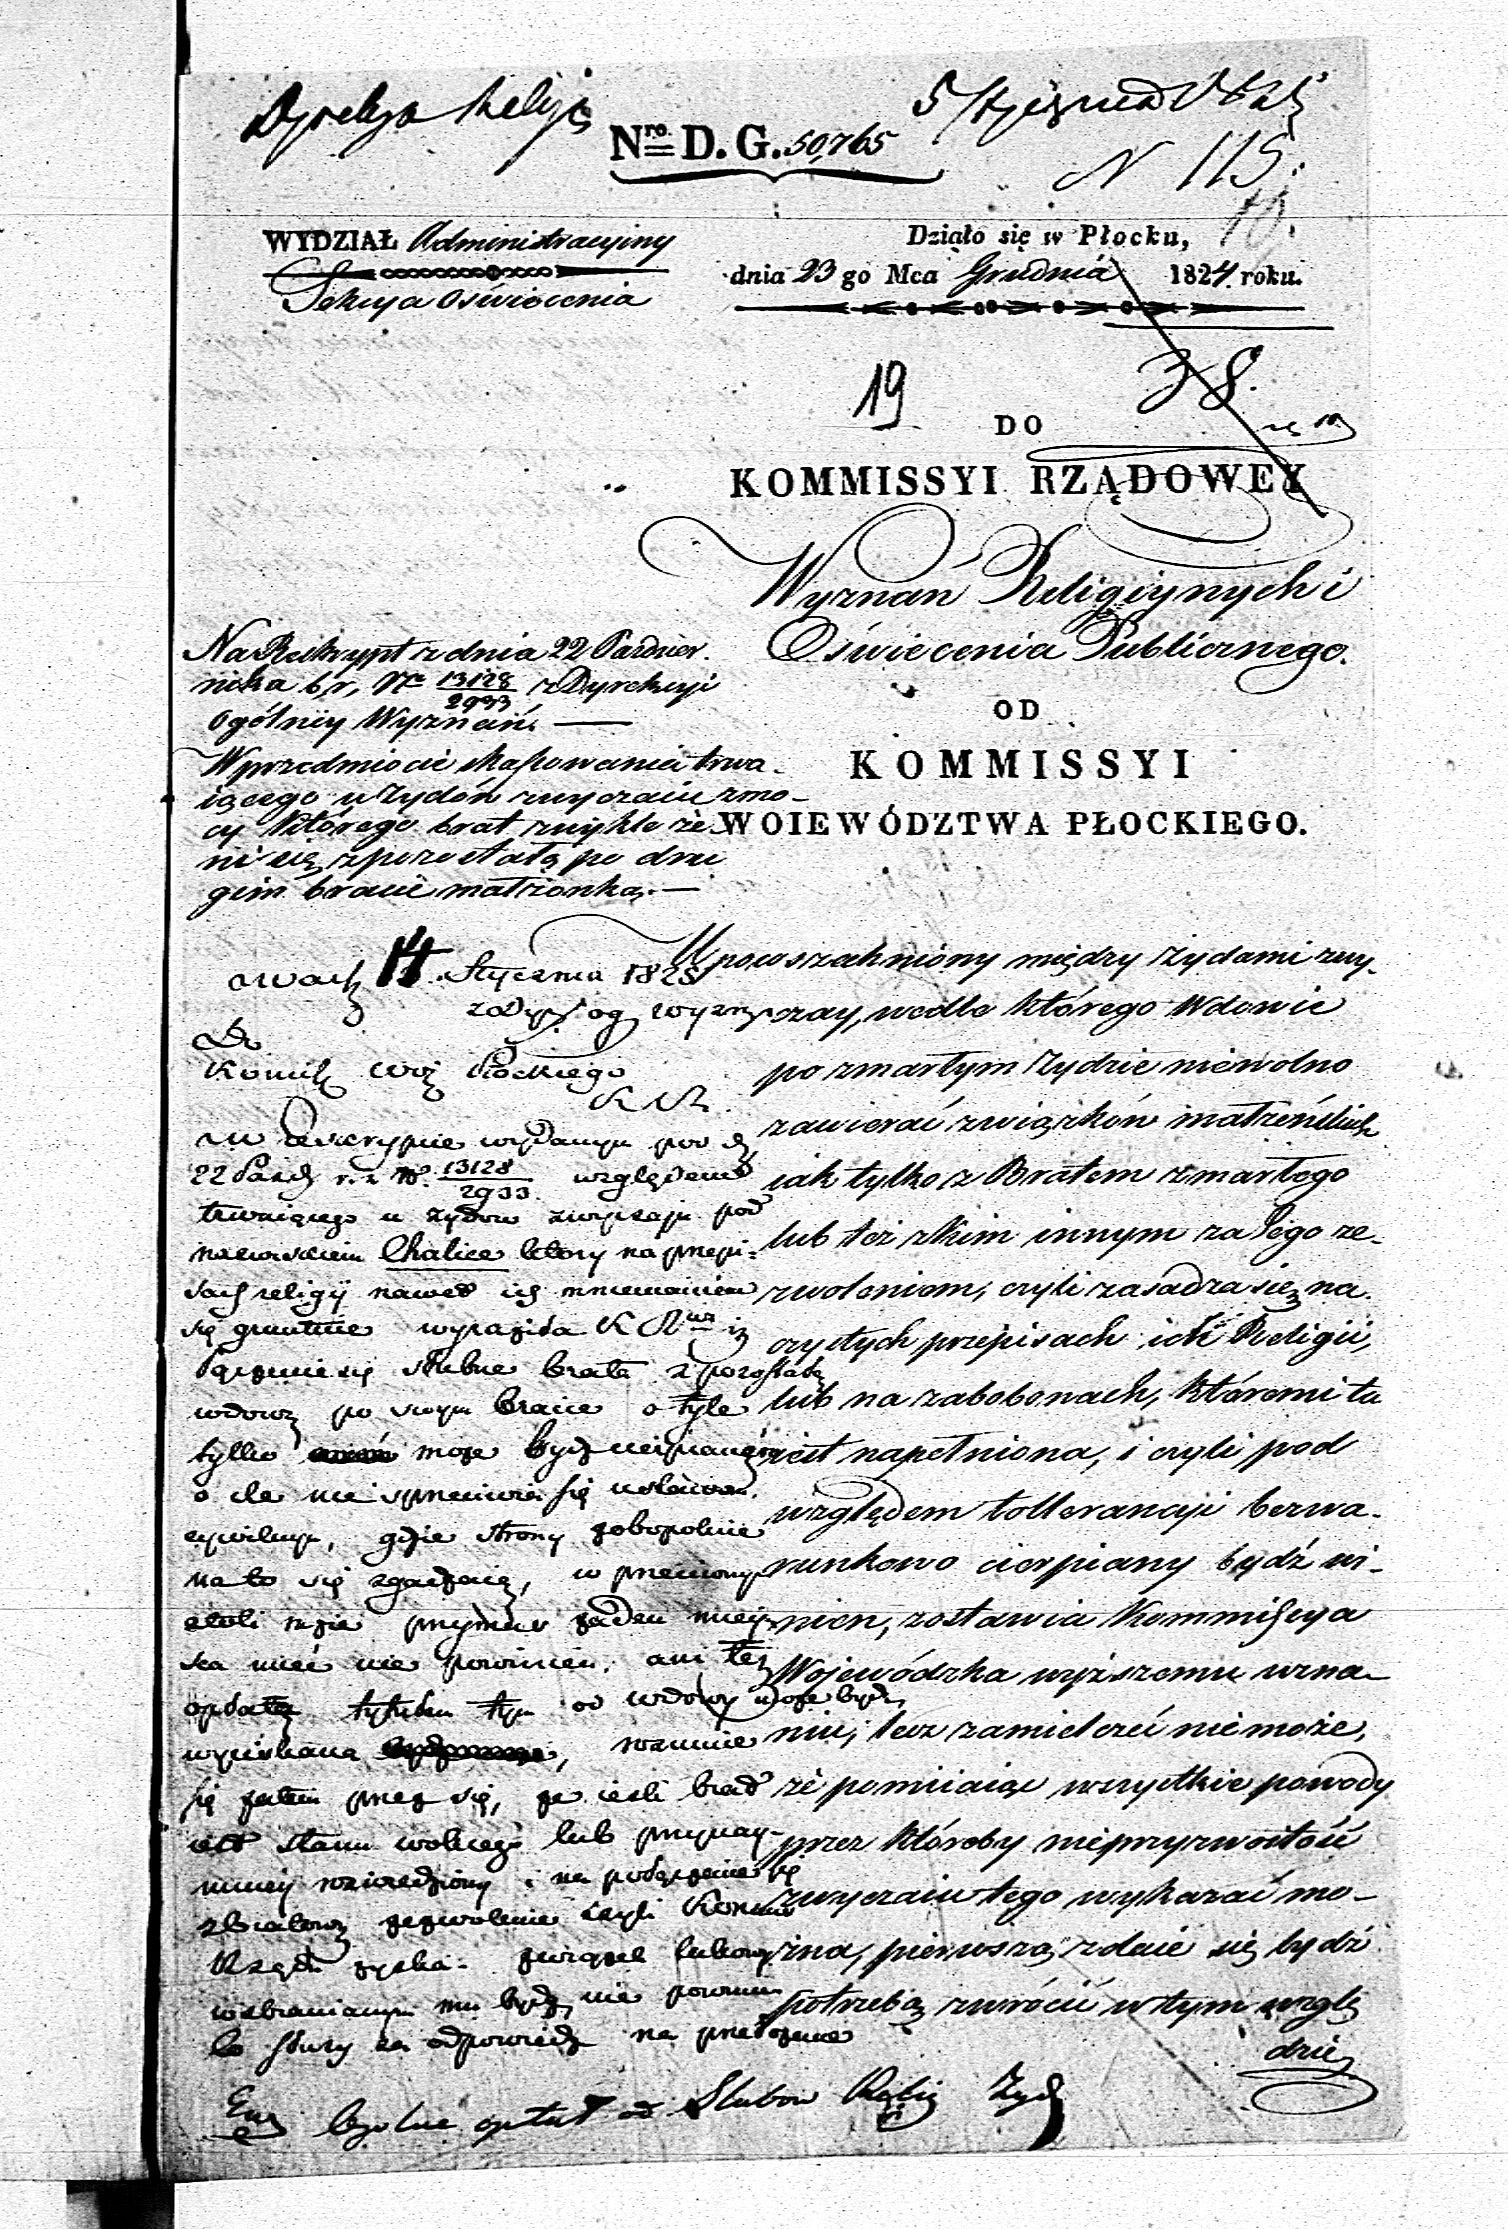 Dyrekcya Religij
5 Stycznia 1825
Nro. D. G. 50,765
N 115.
WYDZIAŁ Administracyiny
Sekcya Oświecenia
Działo się w Płocku,
dnia 23 go Mca Grudnia 1824 roku.
19
38.
DO
KOMMISSYI RZĄDOWEY
Wyznań Religiynych i
Oświecenia Publicznego.
OD
KOMMISSYI
WOIEWÓDZTWA PŁOCKIEGO.
Na Reskrypt z dnia 22 Pazdzier.
nika b. r. Nro 13128/2933 z Dyrekcyi
Ogólney Wyznań. —
W przedmiocie skassowania trwa-
iącego u Żydów zwyczaiu z mo-
cy którego brat zwykle że-
ni się z pozostałą po dru
gim bracie małżonką. —
Upowszechniony między Żydami zwy-
czay, wedle którego Wdowie
po zmarłym Żydzie niewolno
zawierać związków małżeńskich
iak tylko z Bratem zmarłego
lub też z kim innym za Jego ze-
zwoleniem, czyli zasadza się na
czystych przepisach ich Religii,
lub na zabobonach, któremi ta
iest napełniona, i czyli pod
względem tollerancyi bezwa-
runkowo cierpiany bydź wi-
nien, zostawia Kommissya
Wojewódzka wyższemu uzna-
niu; lecz zamilczeć nie może,
że pomiiaiąc wszystkie powody
przez któreby nieprzyzwoitość
zwyczaiu tego wykazać mo-
żna, pierwszą zdaie się bydź
potrzebą zwrócić w tym wzglę
dzie
14 Stycznia 1825
Do
Komissyi Woj. Płockiego
K. R.
W Reskrypcie wydanym pod d.
22 Paźdz. r. z. No. 13128/2933 względem
trwaiącego u Żydów zwyczaju pod
nazwiskiem Chalice który na przepi-
sach religij nawet ich mniemaniem
się gruntuie wyraziła K. R. iż
łączenie się ślubne brata z pozostałą
wdową po swym bracie o tyle
tylko może bydź cierpianém
o ile nie sprzeciwia się ustawom
cywilnym, gdzie strony zobopólnie
na to się zgadzaią, w przeciwnym
razie przymus żaden miey-
sca mieć nie powinien, ani też
opłata tytułem tym od wdowy może bydź
wyciskana, rozumie
się zatem przez się, że ieśli brat
iest stanu wolnego lub przynay-
mniey rozwiedziony i na połączenie się
z bratową zezwolenie czyli Konsens
Rządu zyska. związek ślubny
wzbraniany mu bydź nie powinien
to służy za odpowiedź na przełożenie
względnie opłat od Slubow Relig Żyd